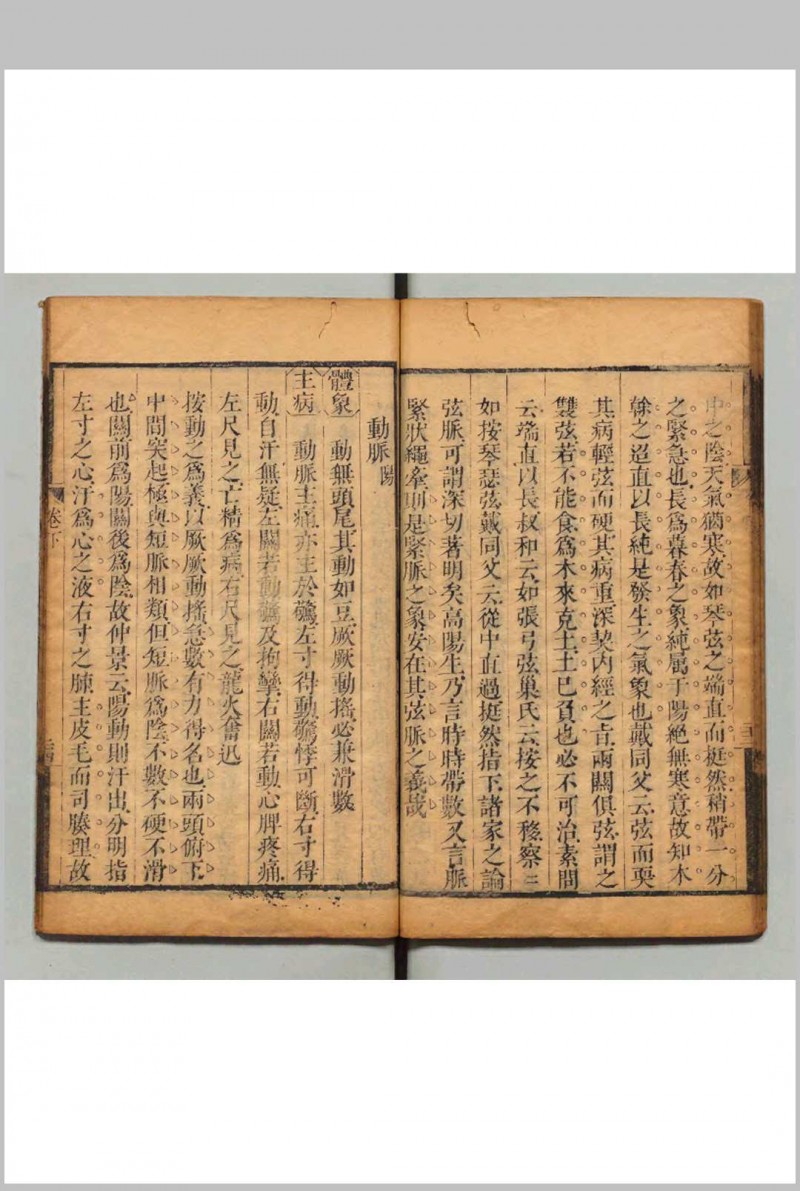 中之陰天氣猶寒故如琴弦之端直而挺然稍帶一分
之緊急也長爲暮春之象純屬于陽絕無寒意故如木
幹之迢直以長純是發生之氣象也戴同父云弦而耎
其病輕弦而硬其病重深契內經之旨兩關俱弦謂之
雙弦若不能食爲木來克土土巳負也必不可治素問
云端直以長叔和云如張弓弦巢氏云按之不移察二
如按琴瑟弦戴同父云從中直過挺然指下諸家之論
弦脈可謂深切著明矣高陽生乃言時時帶數又言脈
緊狀繩牽則是緊脈之象安在其弦脈之義哉
動脈 陽
體象 動無頭尾其動如豆厥厥動搖必兼滑數
主病 動脈主痛亦主於驚左寸得動驚悸可斷右寸得
動自汗無疑左關若動驚及拘攣右關若動心脾疼痛
左尺見之亡精爲病右尺見之龍火奮迅
按動之爲義以厥厥動搖急數有力得名也兩頭俯下
中間突起極與短脈相類但短脈爲陰不數不硬不滑
也關前爲陽關後爲陰故仲景云陽動則汗出分明指
左寸之心汗爲心之液右寸之肺主皮毛而司腠理故
卷下